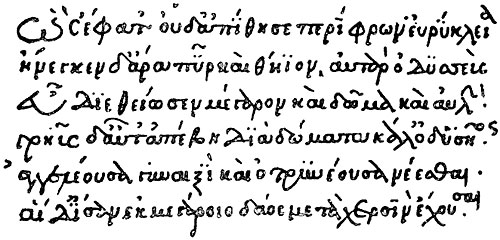 ὣς ἔφατ' οὐδ' ἀπίθησε περίφρων εὐρύκλεια
ἤνεγκεν δ' ἄρα πῦρ καὶ θήϊον. αὐτὰρ ὀδυσσεὺς
εὖ διεθείωσεν μέγαρον καὶ δῶμα καὶ αὐλήν.
γρηῒς δ' αὖτ' ἀπέβη διὰ δώματα κάλ' ὀδυσῆος.
ἀγγελέουσα γυναιξὶ καὶ ὀτρυνέουσα νέεσθαι.
αἱ δ' ἴσαν ἐκ μεγάροιο δάος μετὰ χερσὶν ἔχουσαι.